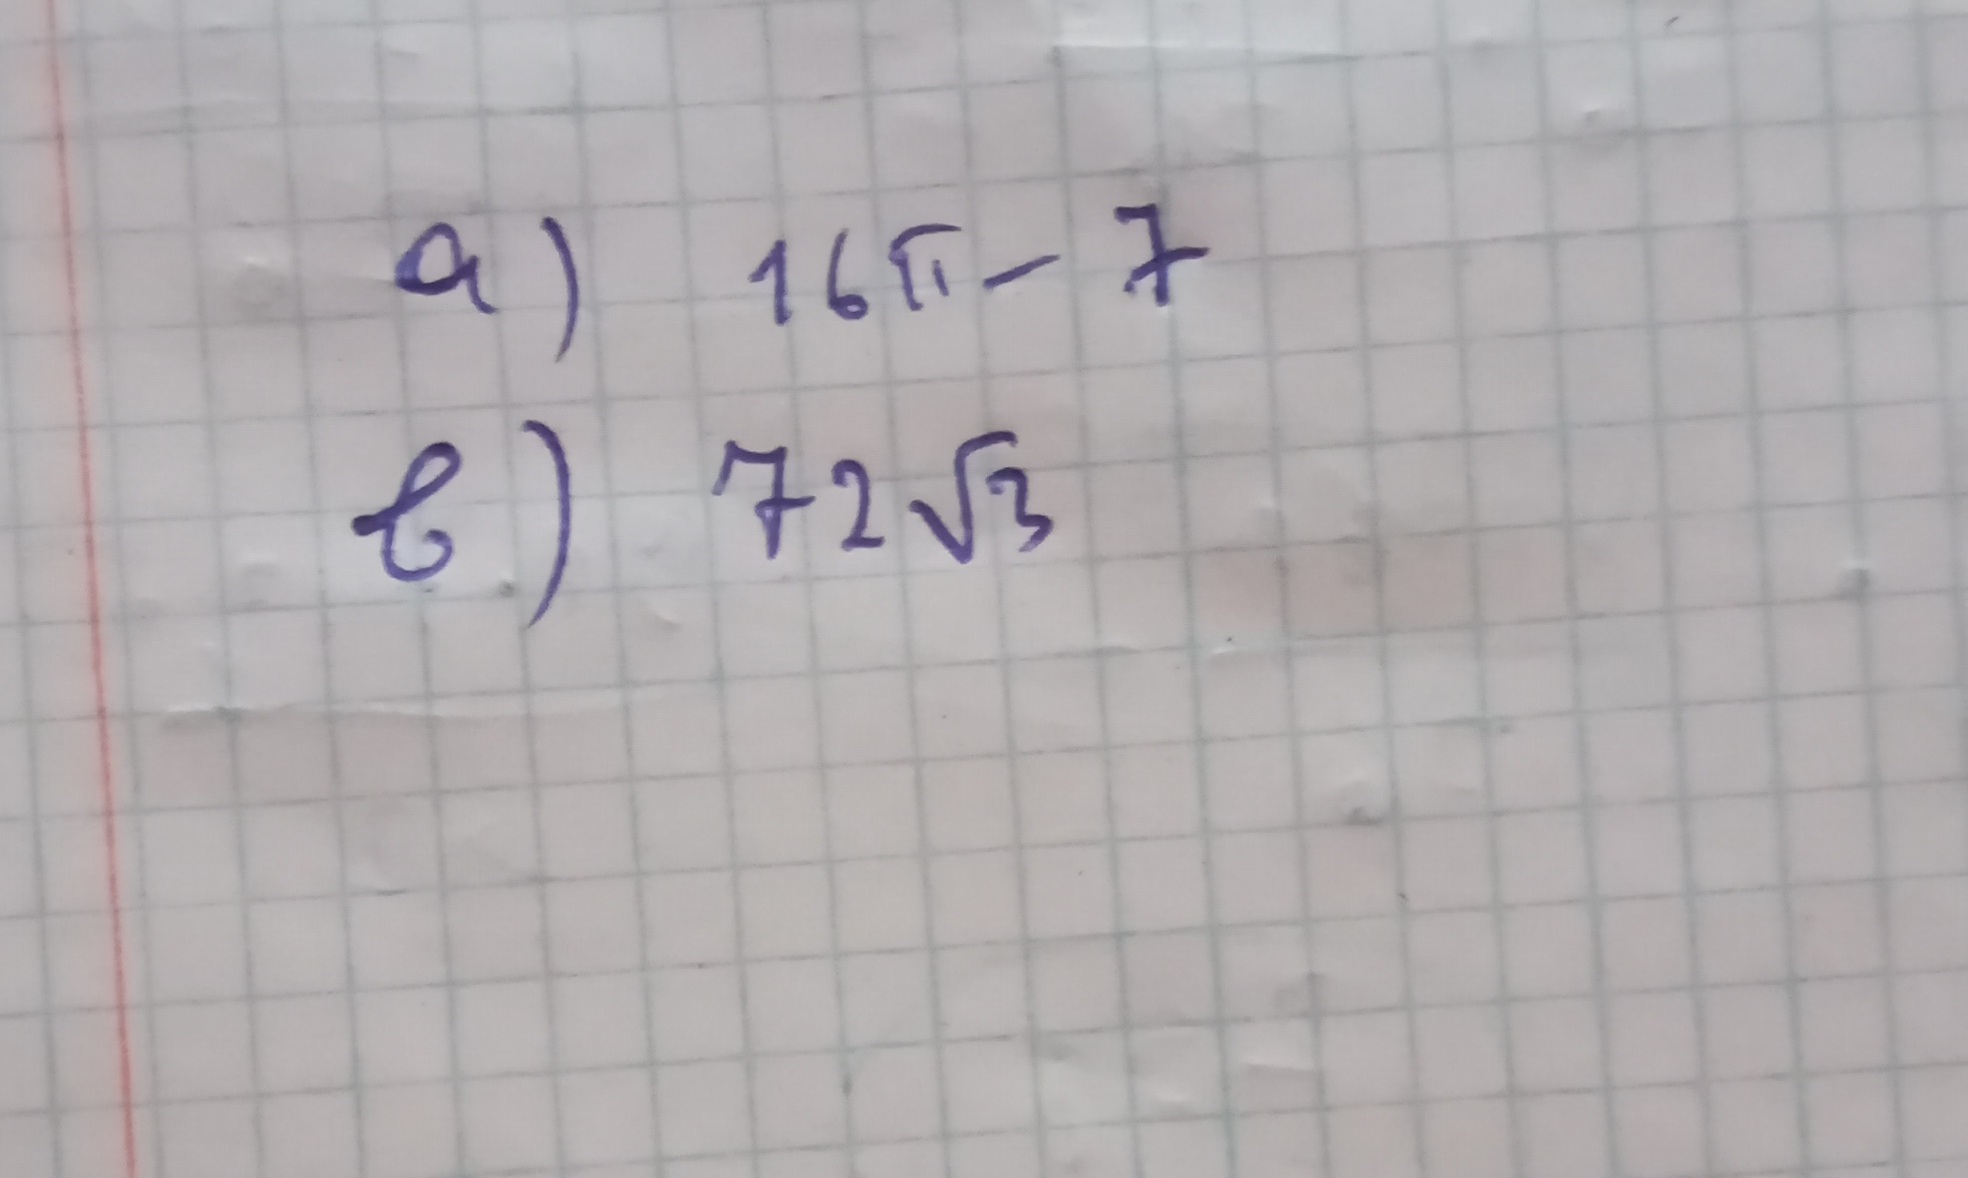 a) 16π - 7
b) 72√3